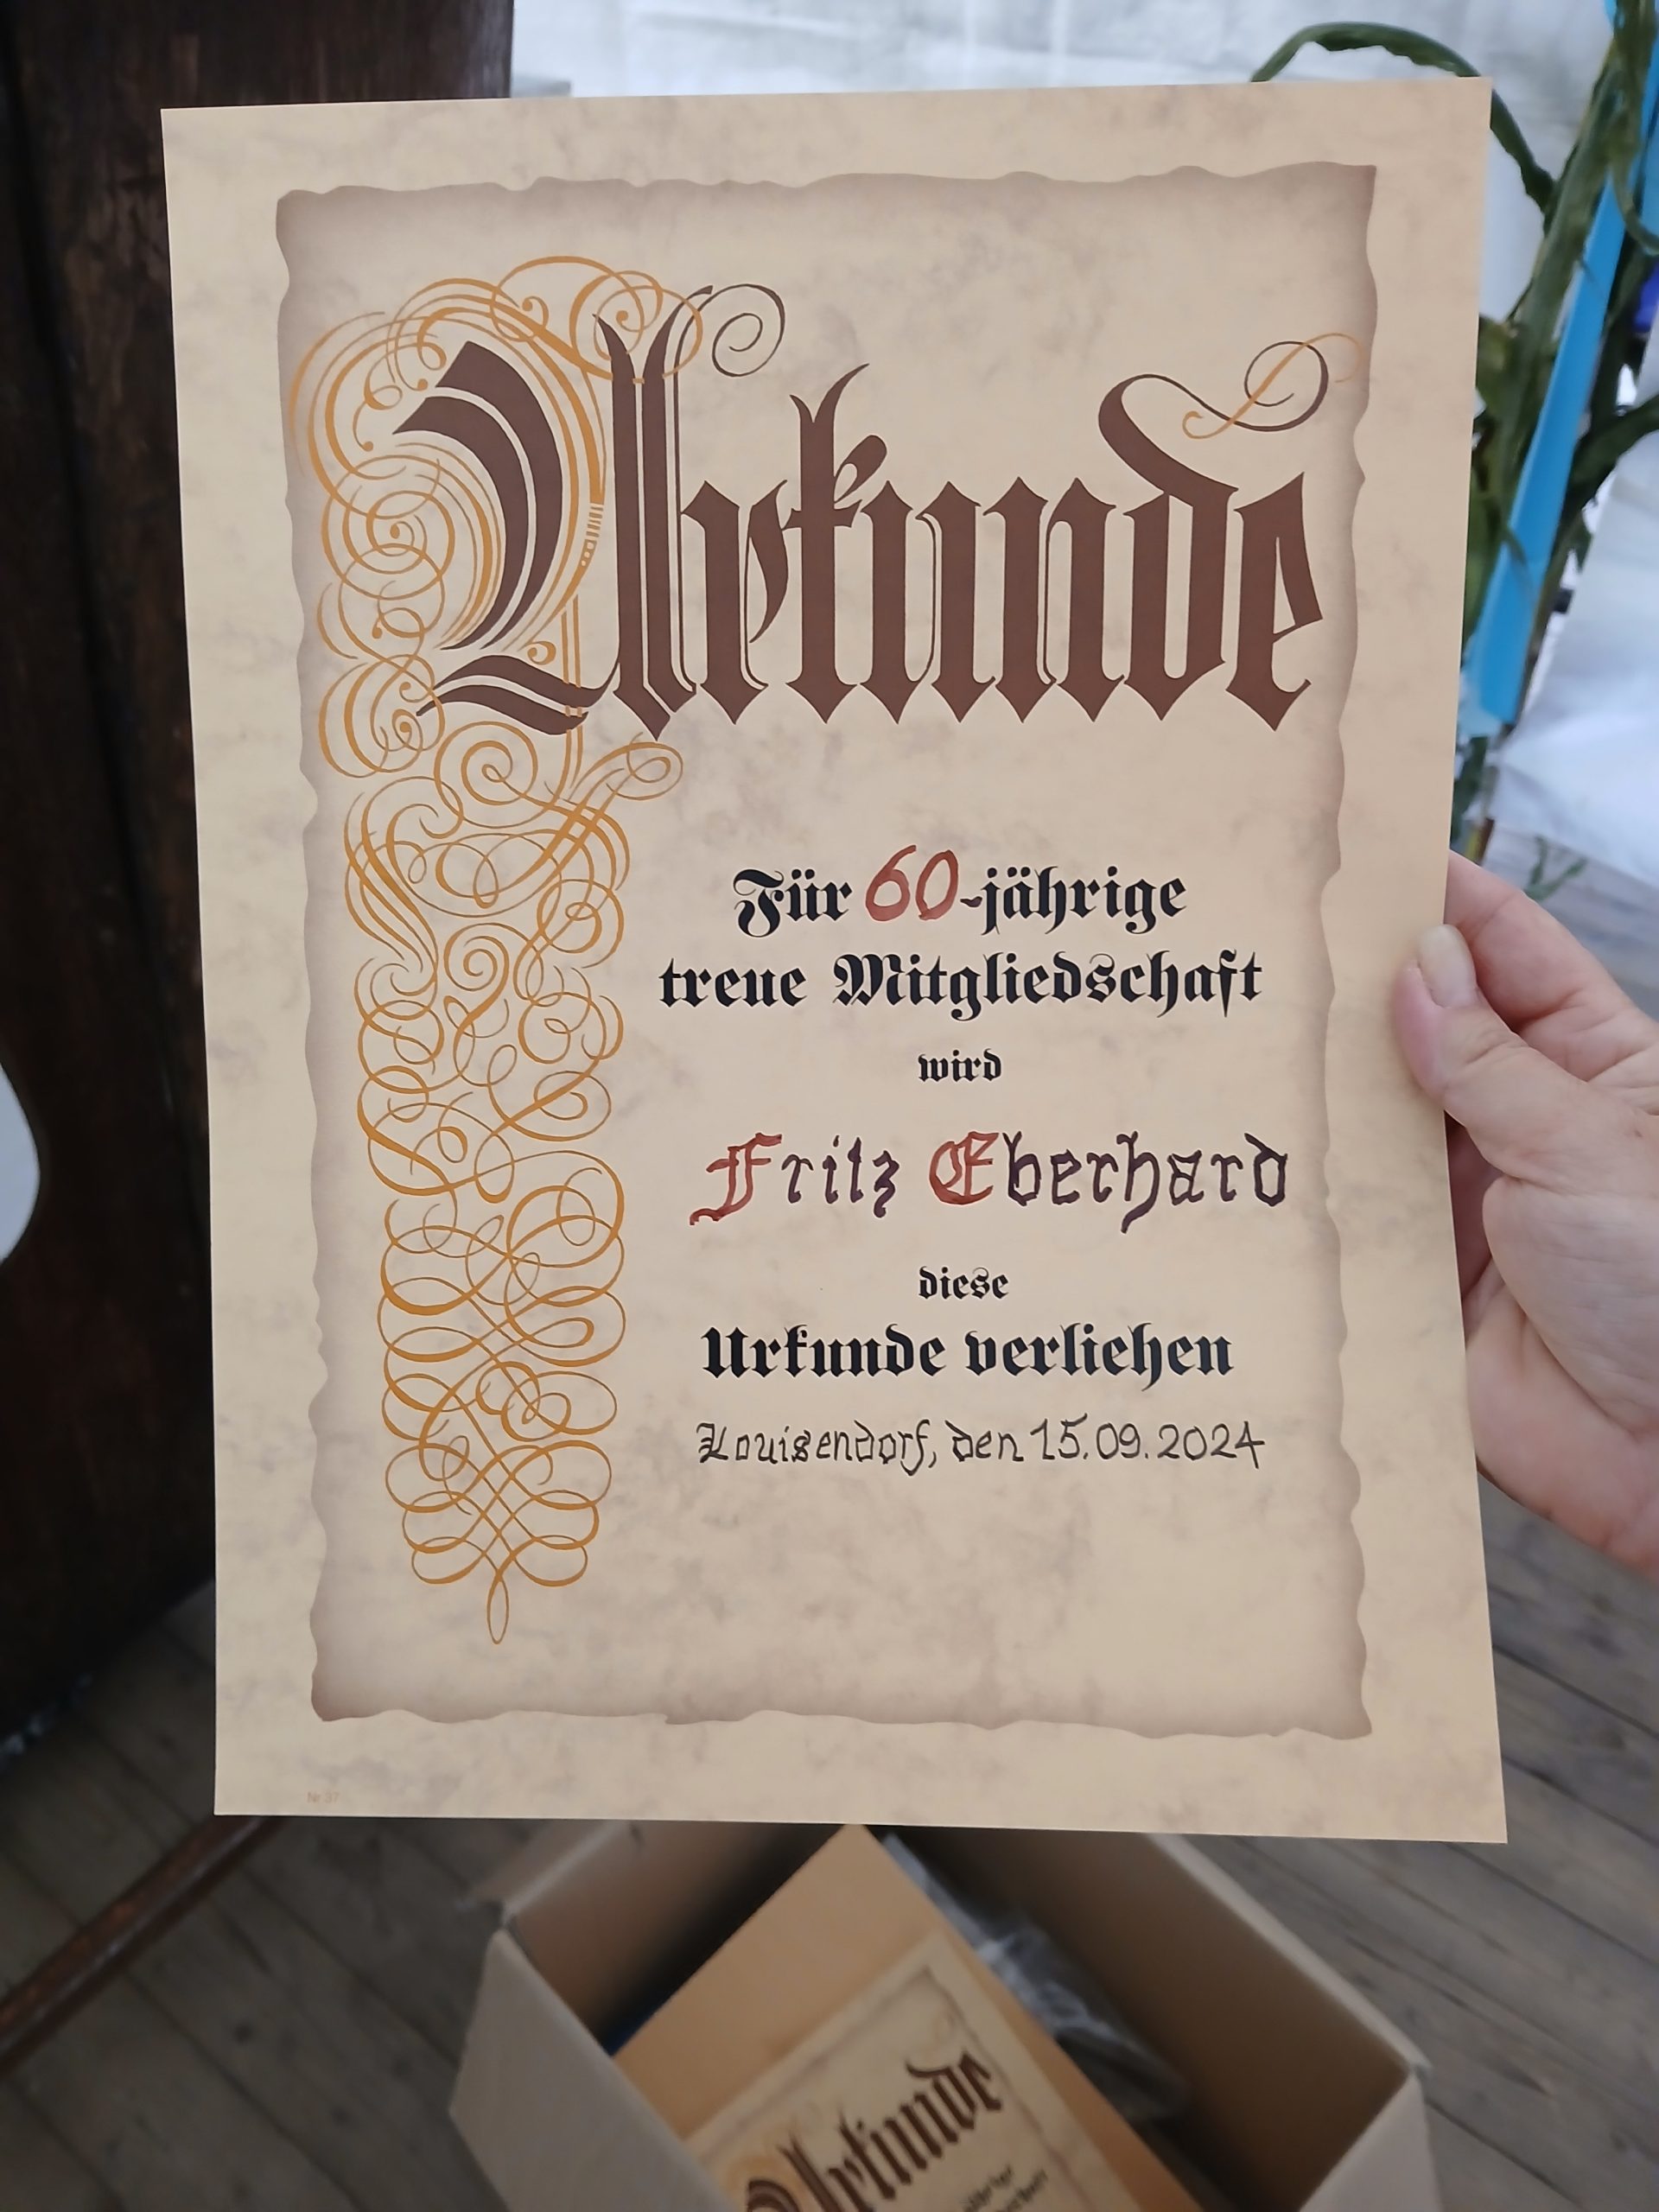 Urkunde
Für 60-jährige
treue Mitgliedschaft
wird
Fritz Eberhard
diese
Urkunde verliehen
Louisendorf, den 15.09.2024
Nr 37
Urkunde